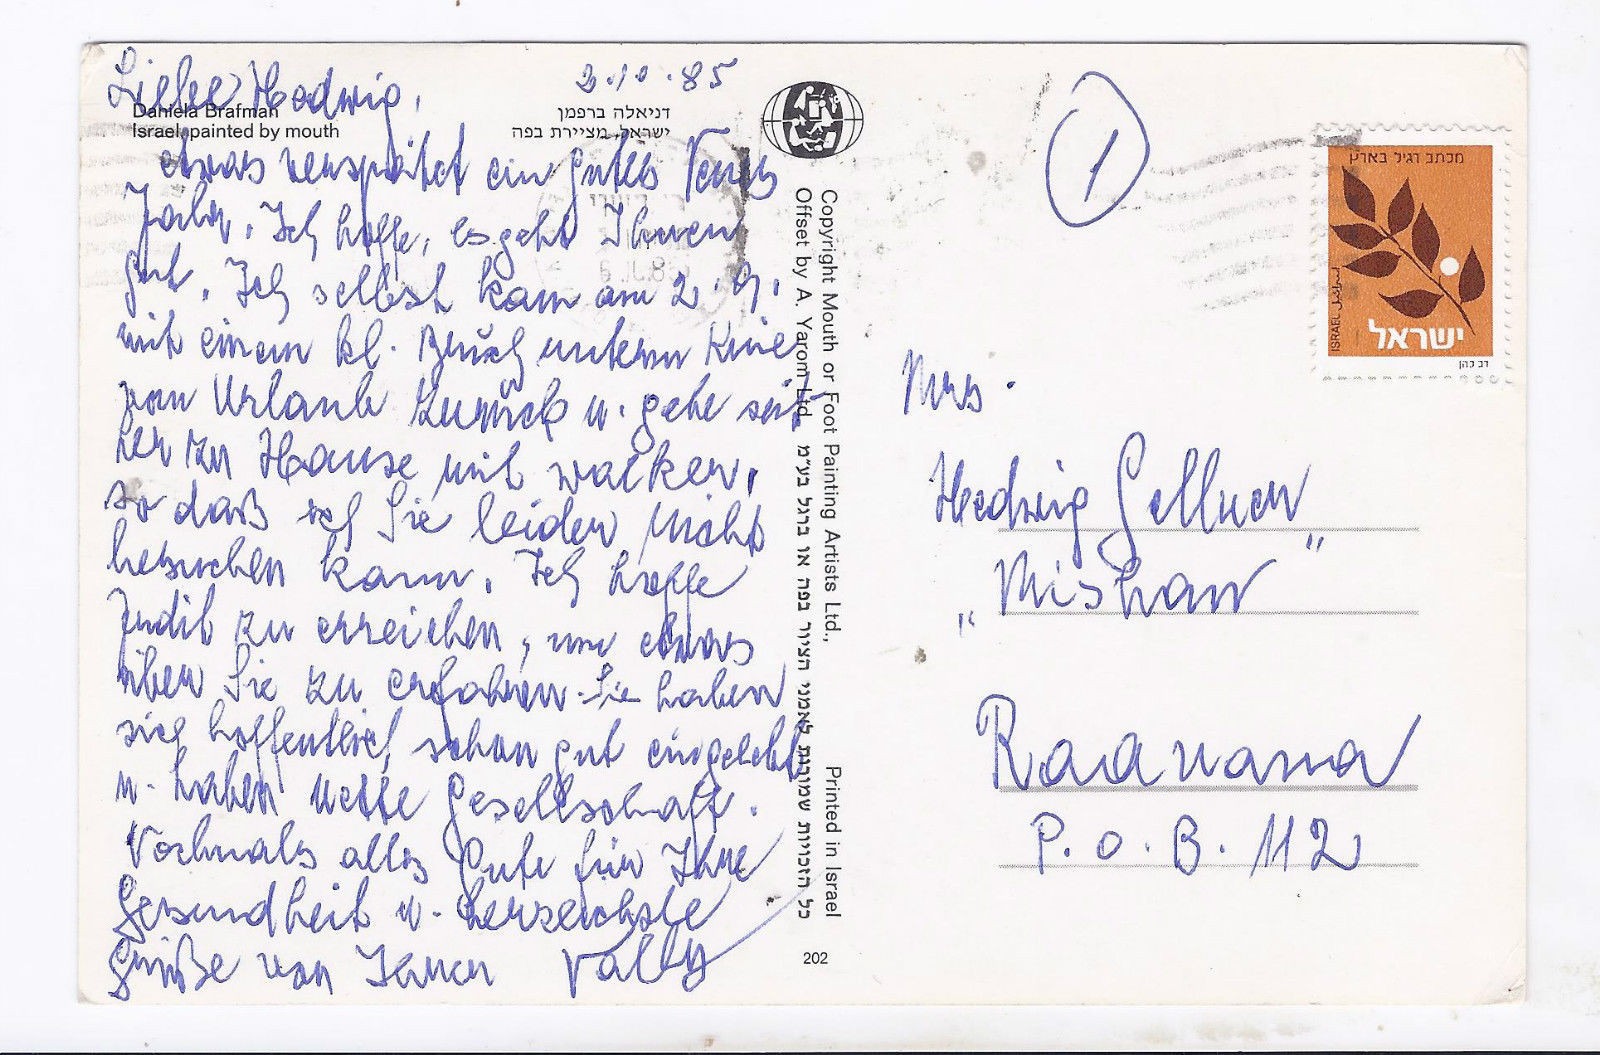 Liebe Hedwig, 2.10.85
Daniela Brafman
Israel, painted by mouth
דניאלה ברפמן
ישראל, מציירת בפה
etwas verspätet ein gutes Neues
Jahr. Ich hoffe, es geht Ihnen
gut. Ich selbst kam am 2.9.
mit einem kl. Bruch unterm Knie
von Urlaub zurück u. gehe seit
her zu Hause mit walker,
so daß ich Sie leider nicht
besuchen kann. Ich hoffe
Judit zu erreichen, um etwas
über Sie zu erfahren. Sie haben
sich hoffentlich schon gut eingelebt
u. haben nette Gesellschaft.
Nochmals alles Gute für Ihre
Gesundheit u. herzlichste
Grüße von Ihrer Vally
Copyright Mouth or Foot Painting Artists Ltd., Printed in Israel
Offset by A. Yarom Ltd.
כל הזכויות שמורות לאמני הציור בפה או ברגל בע״מ
202
1
מכתב רגיל בארץ
اسرائيل
ISRAEL
ישראל
דב כהן
Mrs.
Hedwig Gellner
„Mishan"
Raanana
P.O.B. 112